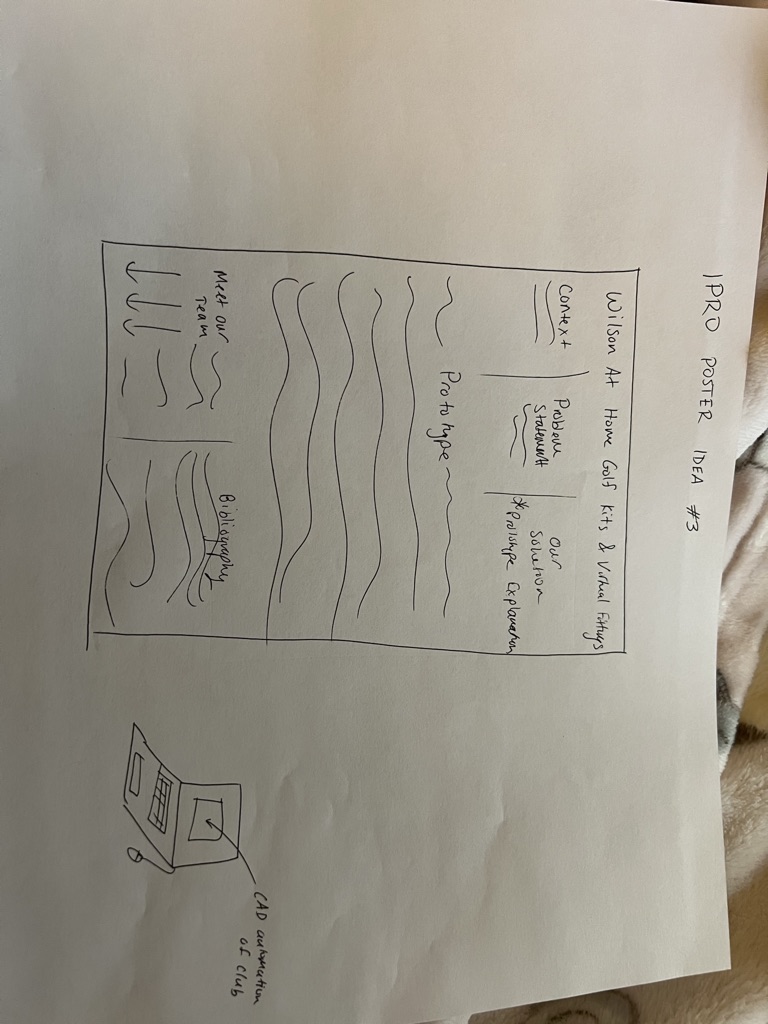 IPRO POSTER IDEA #3
Wilson At Home Golf Kits & Virtual Fittings
Context
Problem
Statement
Our
Solution
*Prototype Explanation
Prototype
Meet our
Team
Bibliography
CAD automation
of club